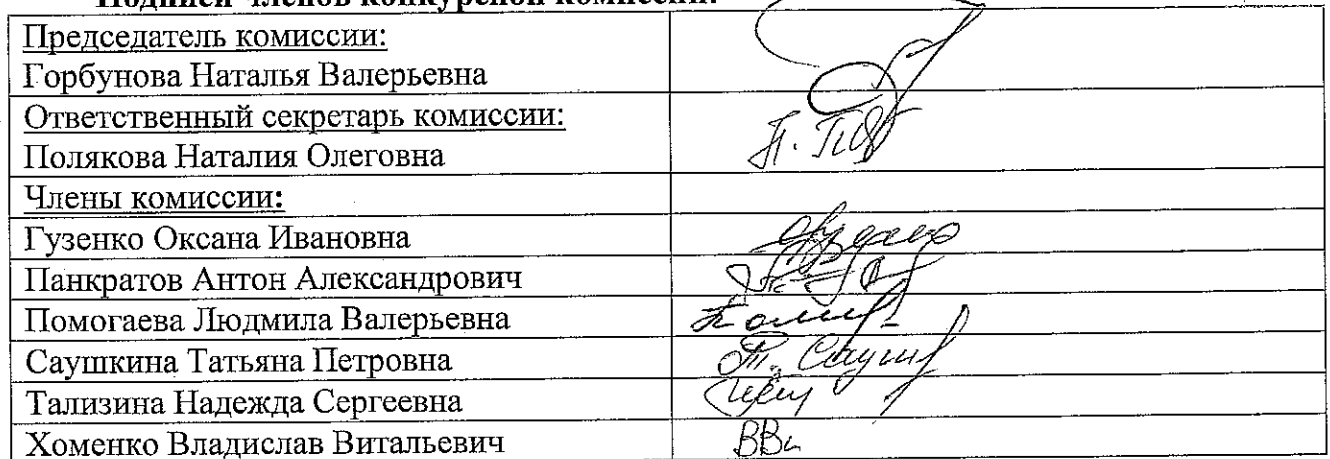 Подписи членов конкурсной комиссии:
Председатель комиссии:
Горбунова Наталья Валерьевна
Ответственный секретарь комиссии:
Полякова Наталия Олеговна
Члены комиссии:
Гузенко Оксана Ивановна
Панкратов Антон Александрович
Помогаева Людмила Валерьевна
Саушкина Татьяна Петровна
Тализина Надежда Сергеевна
Хоменко Владислав Витальевич